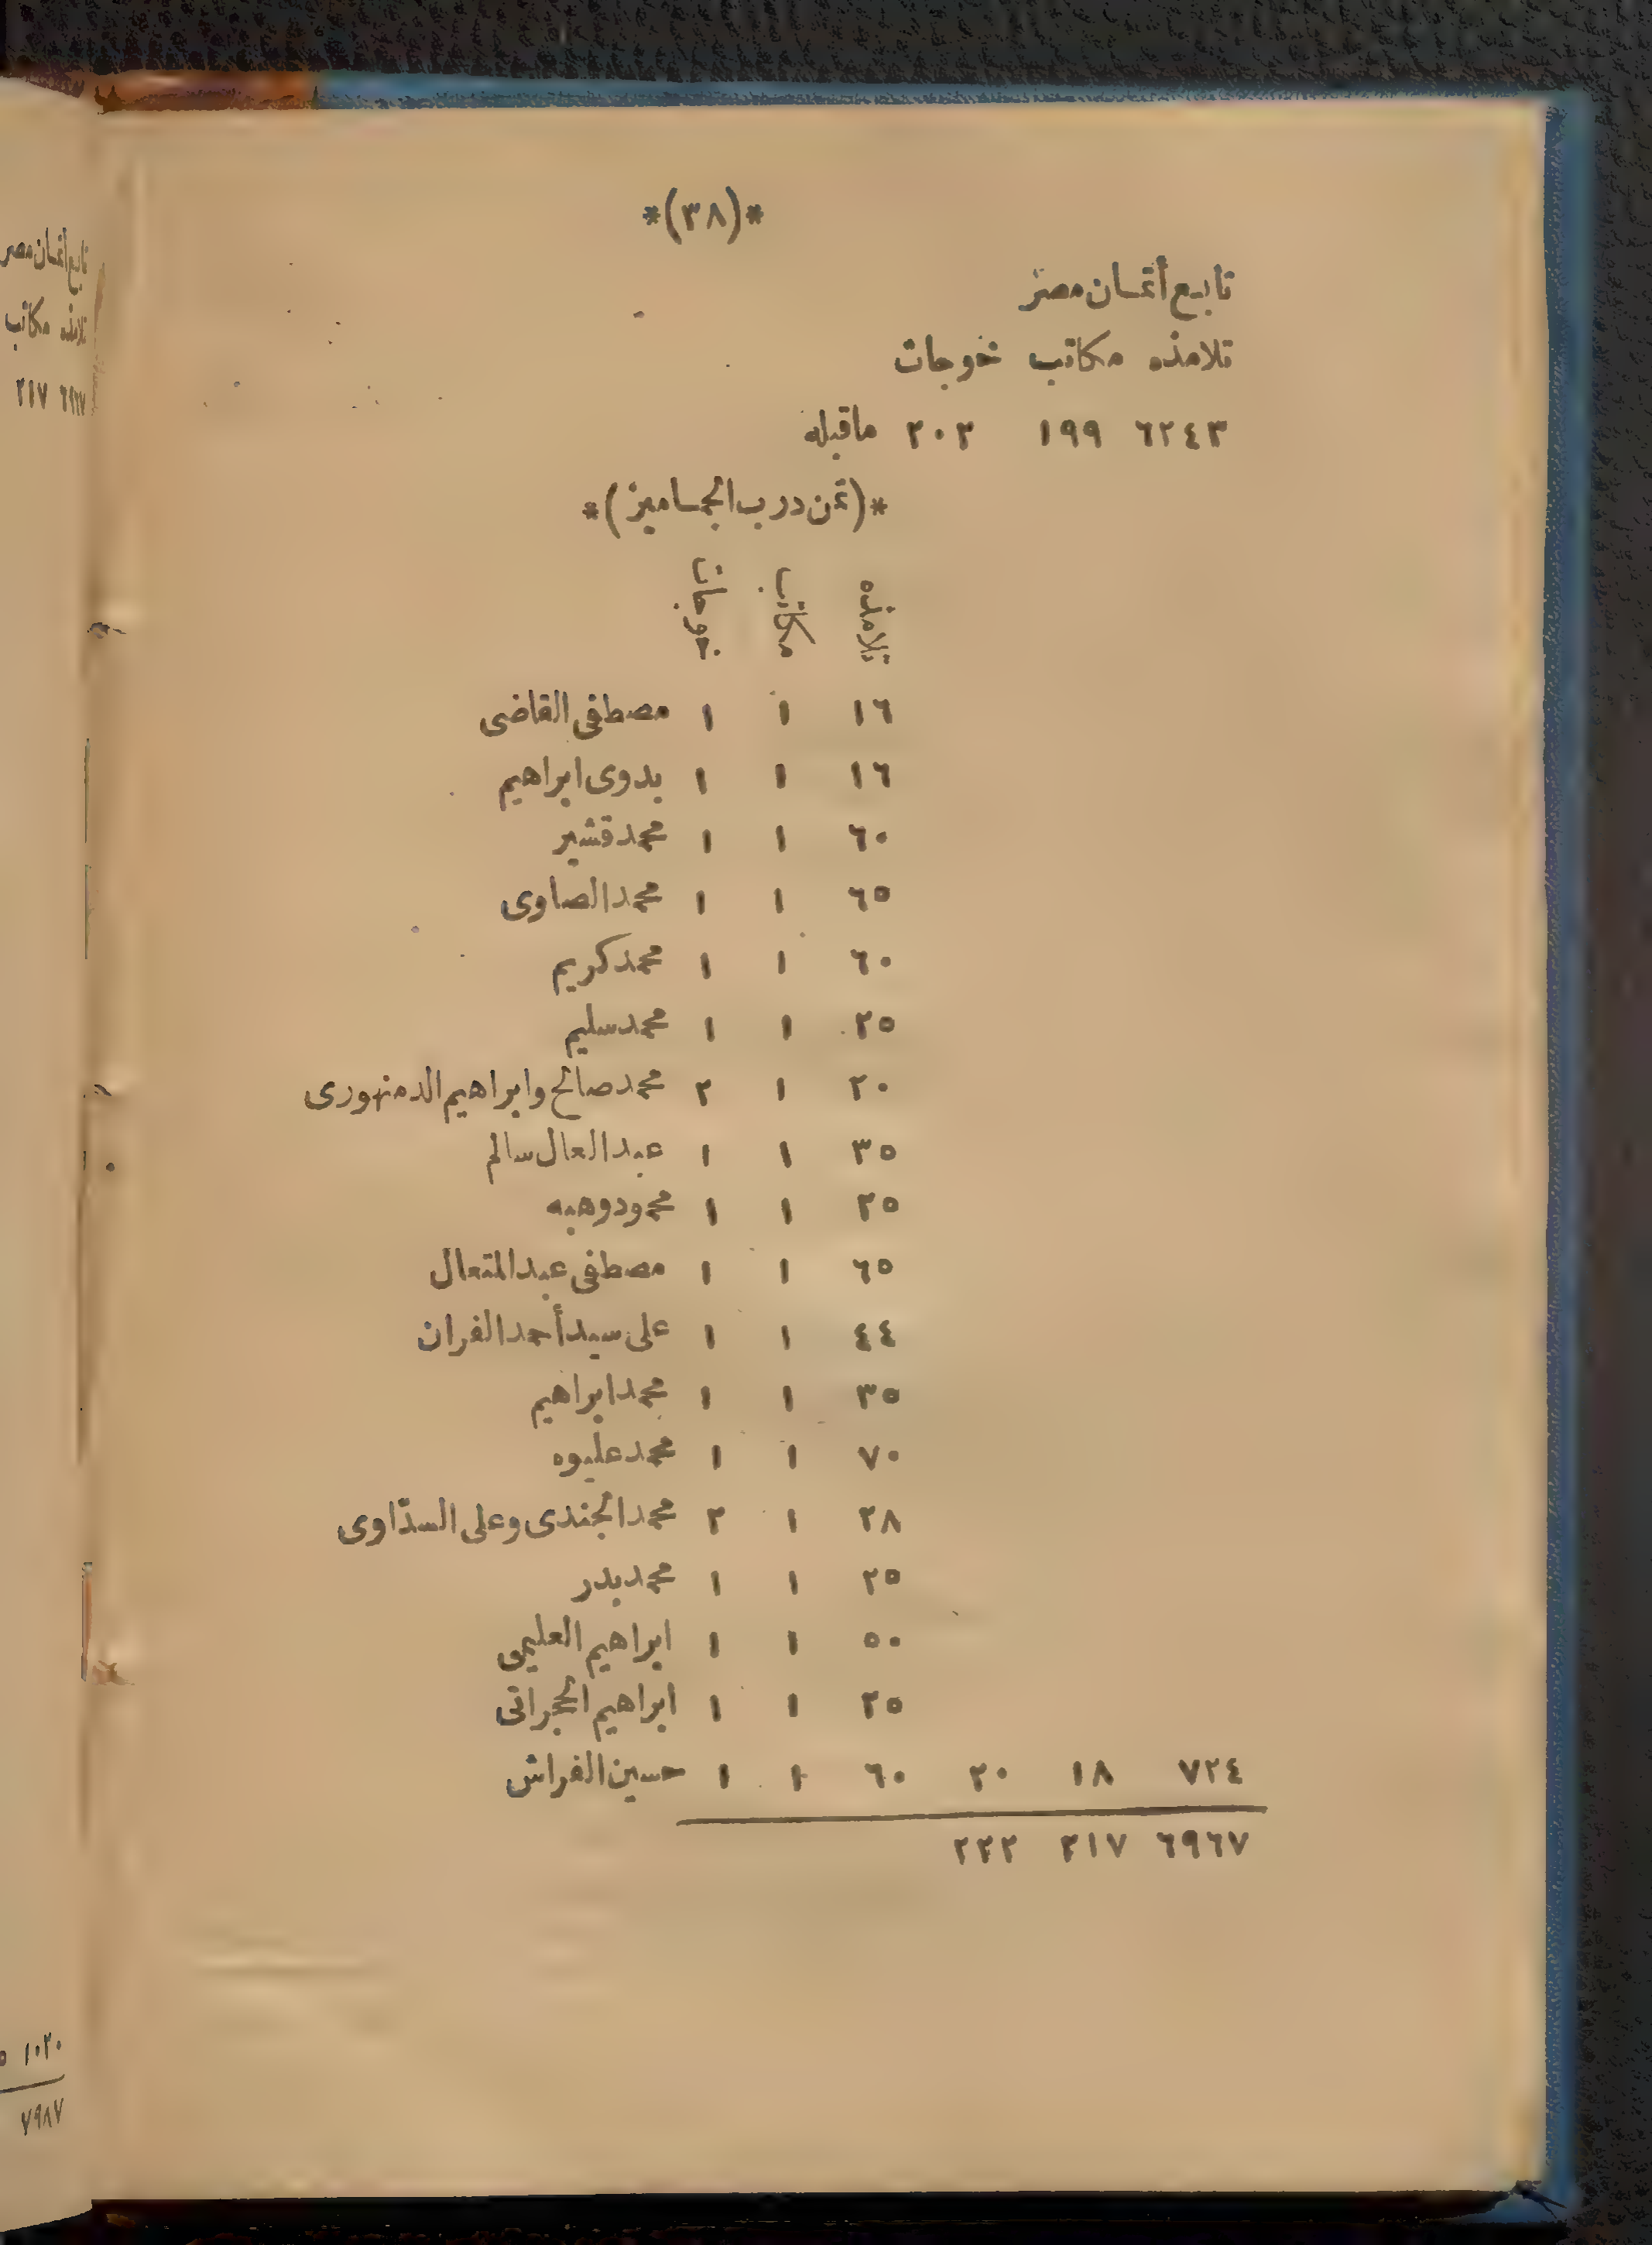 *(٣٨)*
تابع أثمان مصر
تلامذه مكاتب خوجات
٦٢٤٣ ١٩٩ ٢٠٢ ماقبله
*(ثمن درب الجماميز)*
تلامذه مكاتب خوجات
١٦ ١ ١ مصطفى القاضى
١٦ ١ ١ بدوى ابراهيم
٦٠ ١ ١ محمد قشير
٦٥ ١ ١ محمد الصاوى
٦٠ ١ ١ محمد كريم
٢٥ ١ ١ محمد سليم
٢٠ ١ ٢ محمد صالح وابراهيم الدمنهورى
٣٥ ١ ١ عبد العال سالم
٢٥ ١ ١ محمود وهبه
٦٥ ١ ١ مصطفى عبد المتعال
٤٤ ١ ١ على سيد أحمد الفران
٣٥ ١ ١ محمد ابراهيم
٧٠ ١ ١ محمد عليوه
٢٨ ١ ٢ محمد الجندى وعلى السدّاوى
٢٥ ١ ١ محمد بدر
٥٠ ١ ١ ابراهيم العليمى
٢٥ ١ ١ ابراهيم الحجراتى
٧٢٤ ١٨ ٢٠ ٦٠ ١ ١ حسين الفراش
٦٩٦٧ ٢١٧ ٢٢٢
تابع أثمان مصر
تلامذه مكاتب
٦٩٦٧ ٢١٧
١٠٢٠
٧٩٨٧